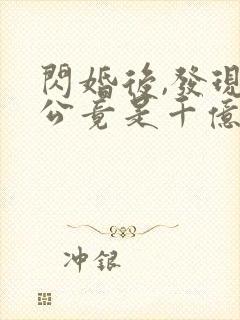 閃婚後,發現
公竟是千億
冲銀